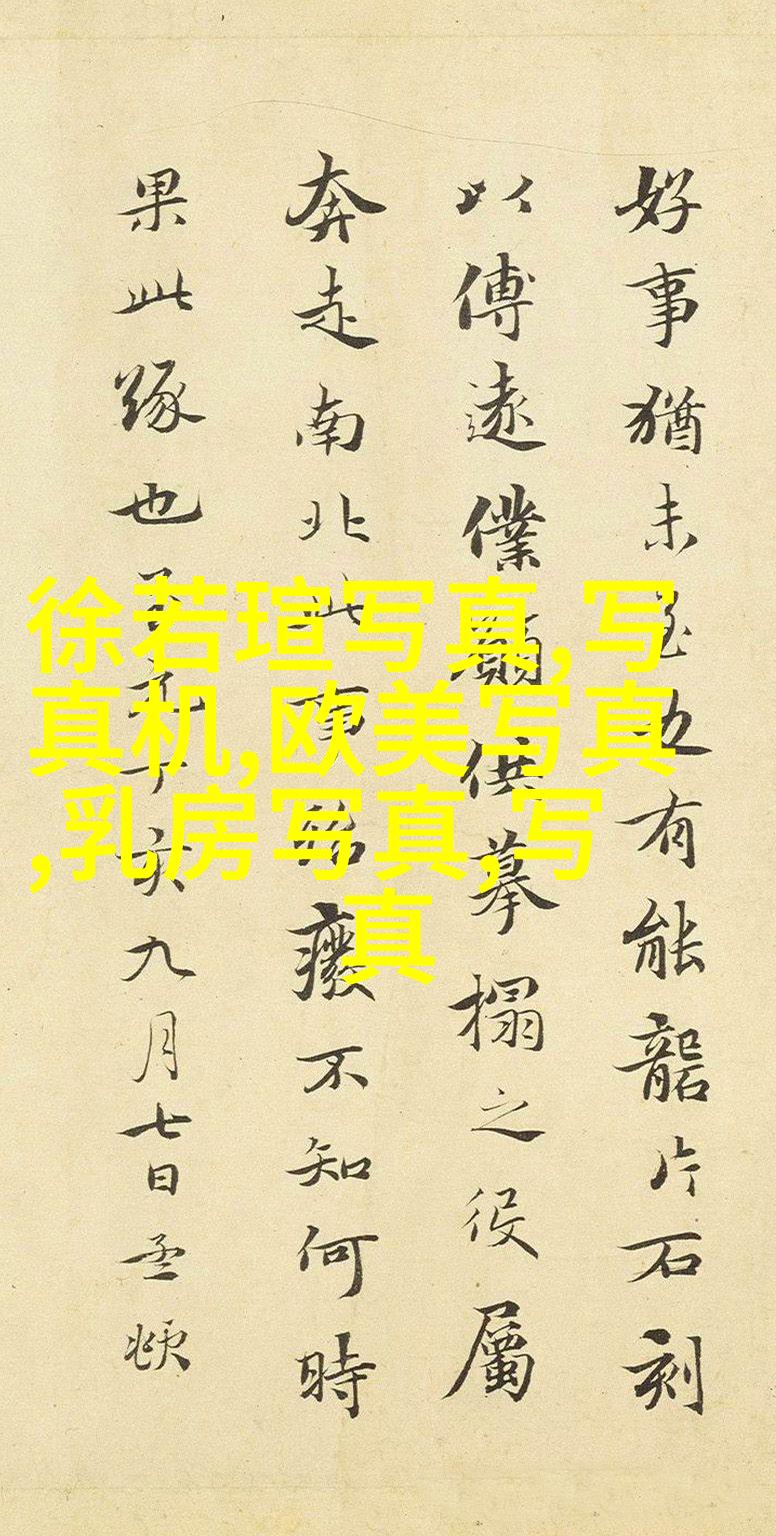 好事猶未⾄也有能礱片石刻
以傳遠僕願供摹搨之役屬
奔走南北此事紛廢不知何時
果此緣也
九月七日
頓
徐若瑄写真,写
真机,欧美写真
,乳房写真,写
真